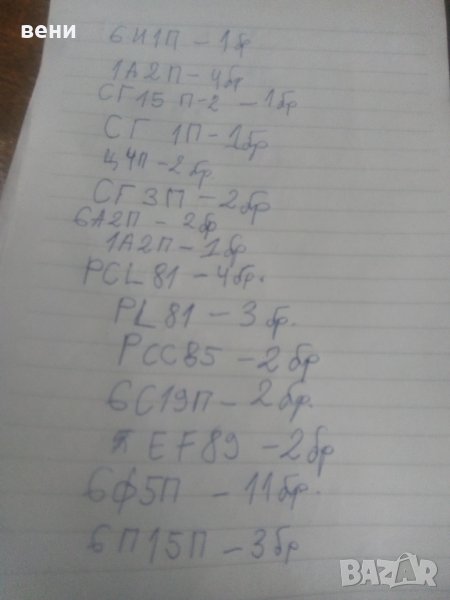 вени
6И1П - 1бр
1А2П - 4бр
СГ15П-2 - 1бр
СГ 1П - 1бр
Ц4П - 2бр.
СГ3П - 2бр
6А2П - 2бр
1А2П - 1бр
PCL81 - 4бр.
PL81 - 3бр.
PCC85 - 2бр
6С19П - 2бр.
EF89 - 2бр
6Ф5П - 11бр.
6П15П - 3бр
BAZAR